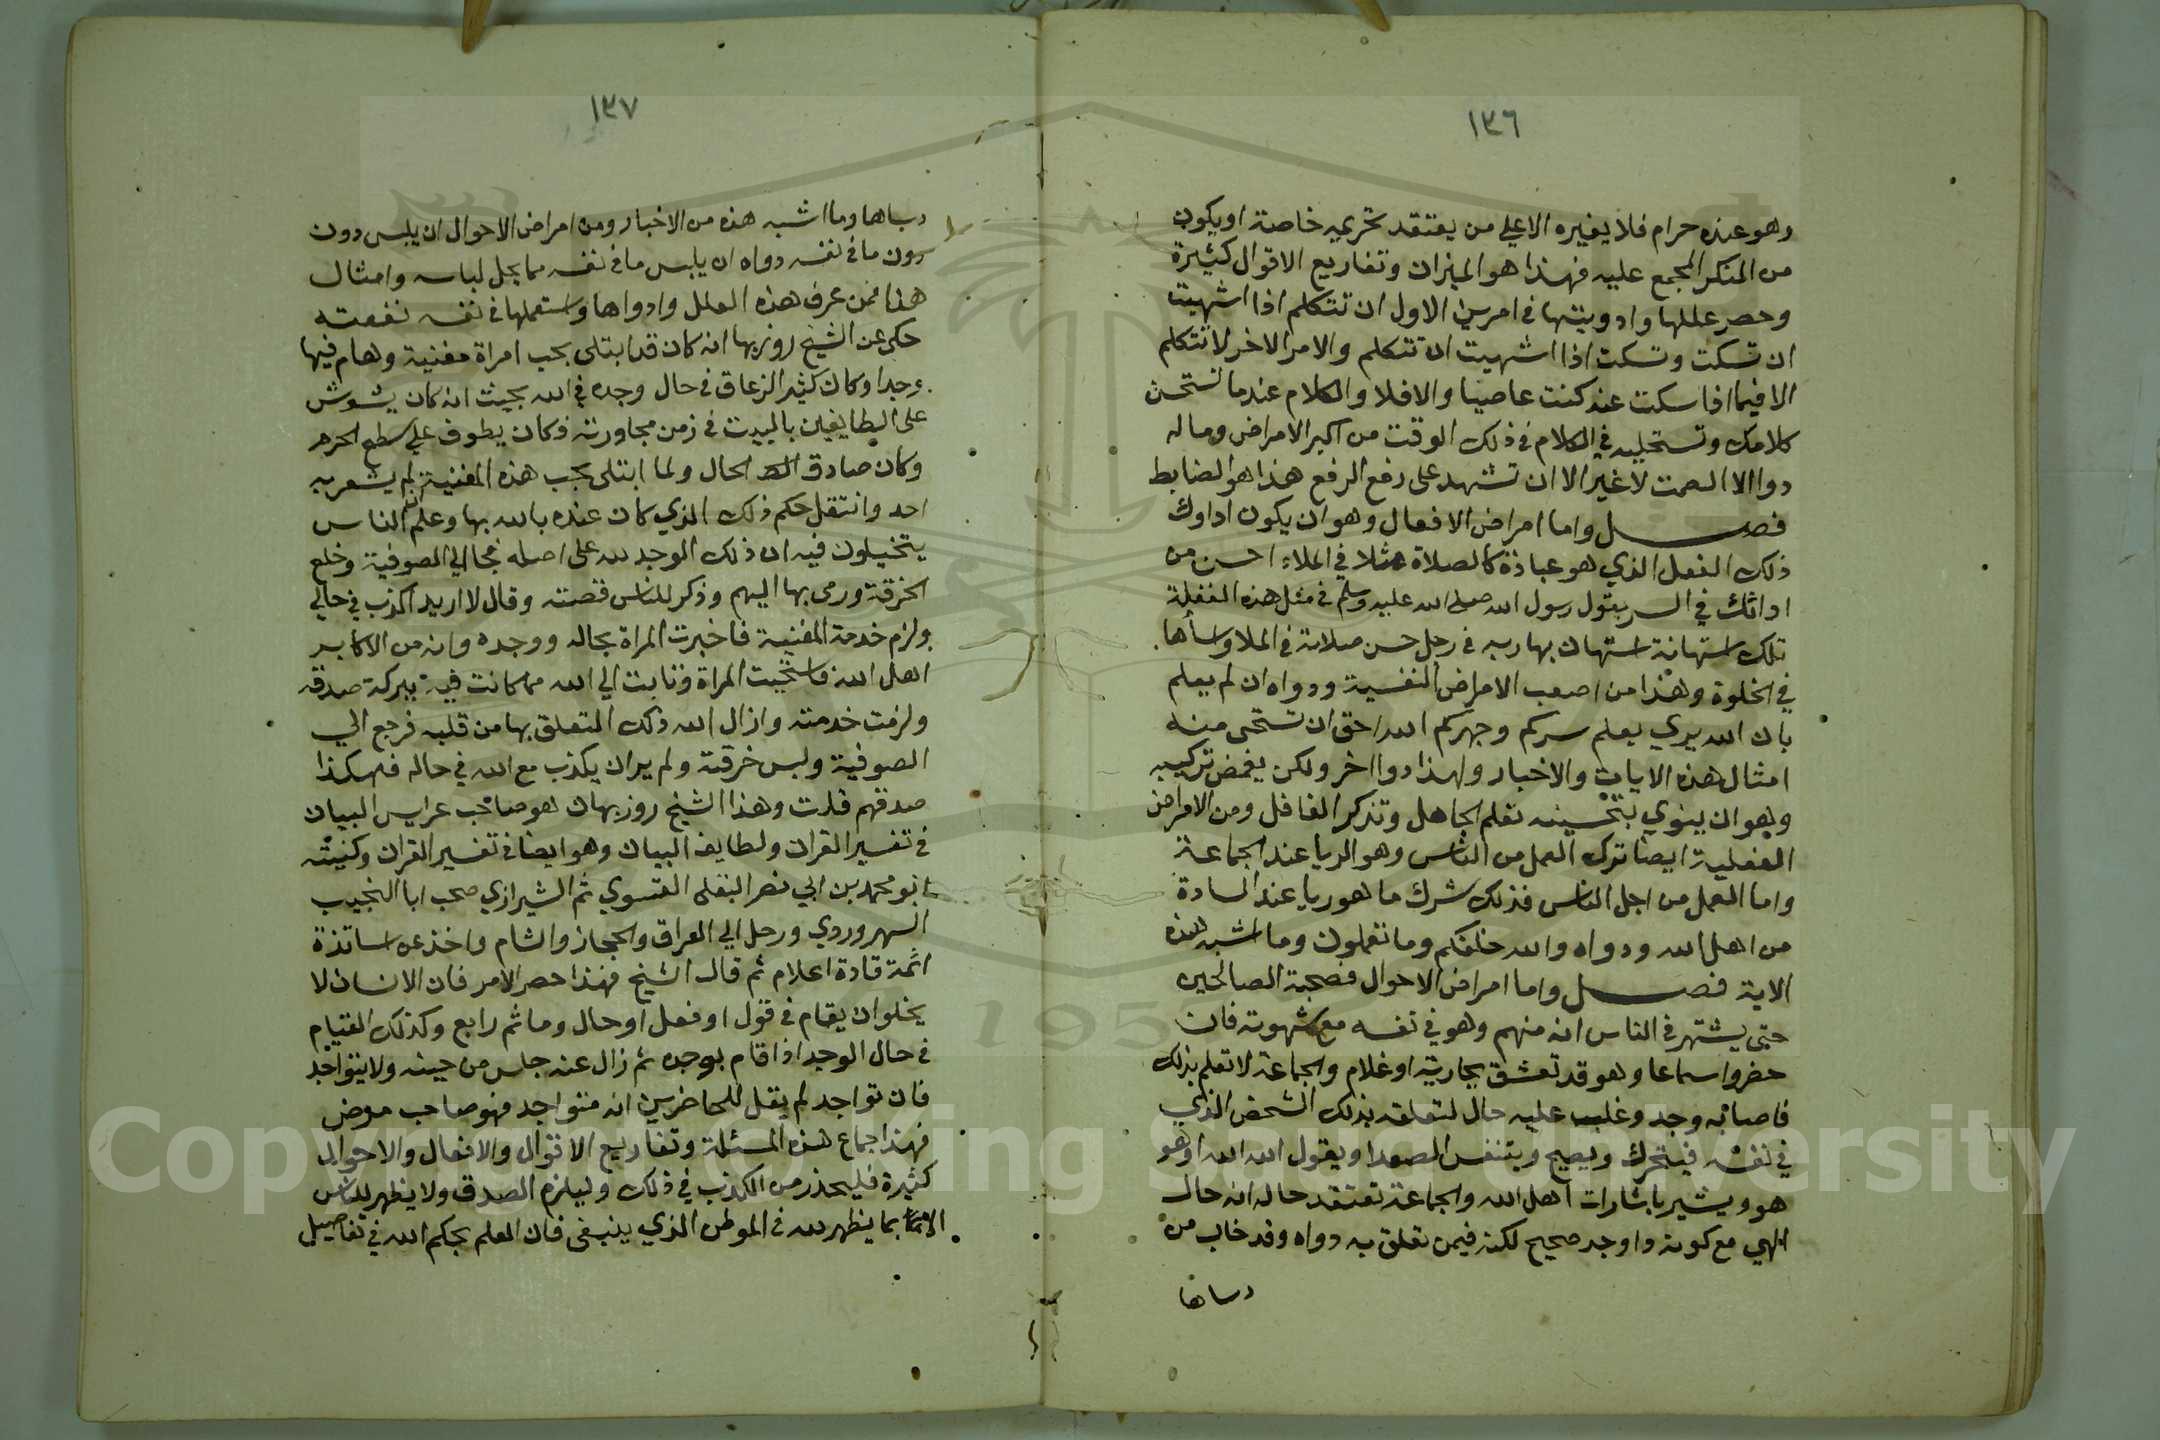 ١٣٦
وهو عنده حرام فلا يغيره الا على من يعتقد تحريمه خاصة او يكون
من المنكر المجمع عليه فهذا هو الميزان وتفاريع الاقوال كثيرة
وحصر عللها وادويتها في امرين الاول ان تتكلم اذا اشتهيت
ان تسكت وتسكت اذا اشتهيت ان تتكلم والامر الاخر لا تتكلم
الا فيما اذا سكت عنه كنت عاصيا والا فلا والكلام عندما تستحسن
كلامك وتستحليه في الكلام في ذلك الوقت من اكبر الامراض وماله
دوا الا الصمت لا غير الا ان تشهد على رفع الرفع هذا هو الضابط
فصل واما امراض الافعال وهو ان يكون اداوك
ذلك الفعل الذي هو عبادة كالصلاة مثلا في الملاء احسن من
ادائك في السر يقول رسول الله صلى الله عليه وسلم في مثل هذه الفعلة
تلك استهانة استهان بها ربه في رجل حسن صلاته في الملا وساها
في الخلوة وهذا من اصعب الامراض النفسية ودواه ان لم يعلم
بان الله يرى يعلم سركم وجهركم الله احق ان تستحى منه
امثال هذه الايات والاخبار ولهذا دوا اخر ولكن يغمض تركيبه
وهو ان ينوي بتحسينه تعلم الجاهل وتذكر الغافل ومن الامراض
الفعلية ايضا ترك العمل من الناس وهو الريا عند الجماعة
واما العمل من اجل الناس فذلك شرك ما هو ريا عند السادة
من اهل الله ودواه والله خلقكم وما تعملون وما اشبه هذه
الاية فصل واما امراض الاحوال فصحبة الصالحين
حتى يشتهر في الناس انه منهم وهو في نفسه مع شهوته فان
حضروا سماعا وهو قد تعشق بجارية او غلام والجماعة لا تعلم بذلك
فاصابه وجد وغلب عليه حال لتعلقه بذلك الشخص الذي
في نفسه فيتحرك ويصيح ويتنفس الصعدا ويقول الله الله او هو
هو ويشير باشارات اهل الله والجماعة تعتقد حاله انه حال
الهي مع كونه ذا وجد صحيح لكنه فيمن تعلق به دواه وقد خاب من
دساها
١٣٧
دساها وما اشبه هذه من الاخبار ومن امراض الاحوال ان يلبس دون
دون ما في نفسه دواه ان يلبس ما في نفسه مما يحل لباسه وامثال
هذا فمن عرف هذه العلل وادواها واستعملها في نفسه نفعته
حكى عن الشيخ روزبها انه كان قد ابتلى بحب امراة مغنية وهام فيها
وجدا وكان كثير الزعاق في حال وجده في الله بحيث انه كان يشوش
على الطايفين بالبيت في زمن مجاورته فكان يطوف على سطح الحرم
وكان صادق الحال ولما ابتلى بحب هذه المغنية لم يشعر به
احد وانتقل حكم ذلك الذي كان عنده بالله بها وعلم ان الناس
يتخيلون فيه ان ذلك الوجد لله على اصله فجا الي الصوفية وخلع
الخرقة ورمى بها اليهم وذكر للناس قصته وقال لا اريد اكذب في حالي
ولزم خدمة المغنية فاخبرت المراة بحاله ووجده وانه من الاكابر
اهل الله فاستحيت المراة وتابت الي الله مما كانت فيه ببركة صدقه
ولزمت خدمته وازال الله ذلك التعلق بها من قلبه فرجع الي
الصوفية ولبس خرقته ولم ير ان يكذب مع الله في حاله فهكذا
صدقهم قلت وهذا الشيخ روزبهان هو صاحب عرايس البيان
في تفسير القران ولطايف البيان وهو ايضا في تفسير القران وكنيته
ابو محمد بن ابي نصر البقلى الفسوي ثم الشيرازي صحب ابا النجيب
السهروردي ورحل الي العراق والحجاز والشام واخذ عن اساتذة
ائمة قادة اعلام ثم قال الشيخ فهذا حصر الامر فان الانسان لا
يخلو ان يقام في قول او فعل او حال وما ثم رابع وكذلك القيام
في حال الوجد اذا قام بوجده ثم زال عنه جلس من حينه ولا يتواجد
فان تواجد لم يقل للحاضرين انه متواجد فهو صاحب مرض
فهذا جماع هذه المسئلة وتفاريع الاقوال والافعال والاحوال
كثيرة فليحذر من الكذب في ذلك وليلزم الصدق ولا يظهر للناس
الا بما يظهر لله في الموطن الذي ينبغي فان العلم بحكم الله في تفاصيل
Copyright © King Saud University
1957